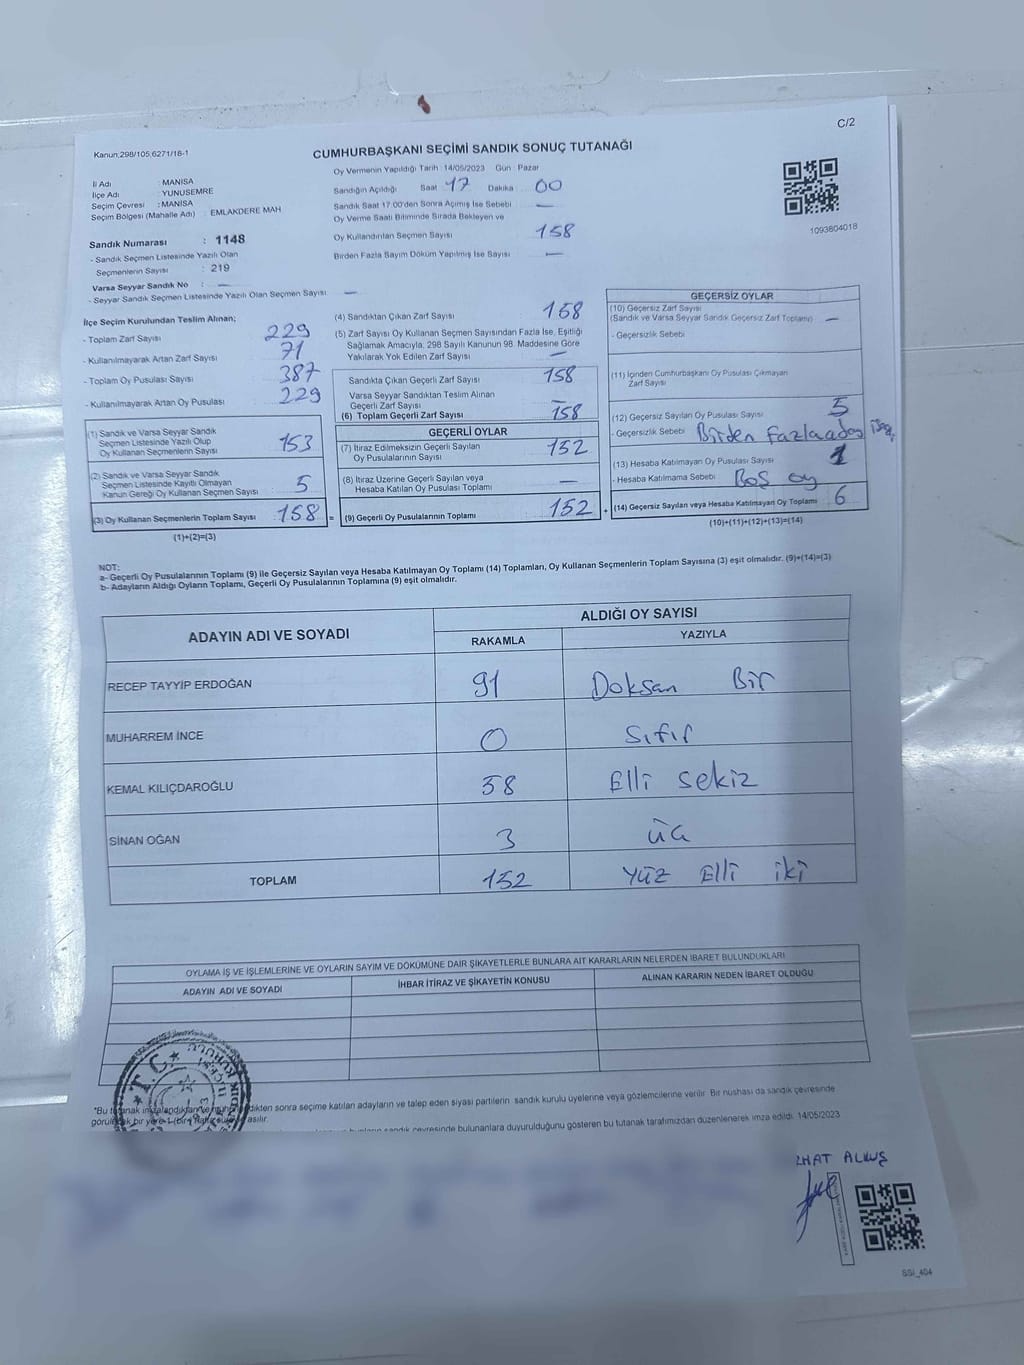 C/2
Kanun;298/105;6271/18-1
CUMHURBAŞKANI SEÇİMİ SANDIK SONUÇ TUTANAĞI
İl Adı : MANİSA
İlçe Adı : YUNUSEMRE
Seçim Çevresi : MANİSA
Seçim Bölgesi (Mahalle Adı) : EMLAKDERE MAH
Sandık Numarası : 1148
- Sandık Seçmen Listesinde Yazılı Olan
Seçmenlerin Sayısı : 219
Varsa Seyyar Sandık No : —
- Seyyar Sandık Seçmen Listesinde Yazılı Olan Seçmen Sayısı : —
Oy Vermenin Yapıldığı Tarih : 14/05/2023 Gün : Pazar
Sandığın Açıldığı Saat : 17 Dakika : 00
Sandık Saat 17:00'den Sonra Açımış İse Sebebi : —
Oy Verme Saati Bitiminde Sırada Bekleyen ve
Oy Kullandırılan Seçmen Sayısı : 158
Birden Fazla Sayım Döküm Yapılmış İse Sayısı : —
1093804018
İlçe Seçim Kurulundan Teslim Alınan;
- Toplam Zarf Sayısı : 229
- Kullanılmayarak Artan Zarf Sayısı : 71
- Toplam Oy Pusulası Sayısı : 387
- Kullanılmayarak Artan Oy Pusulası : 229
(1) Sandık ve Varsa Seyyar Sandık
Seçmen Listesinde Yazılı Olup
Oy Kullanan Seçmenlerin Sayısı : 153
(2) Sandık ve Varsa Seyyar Sandık
Seçmen Listesinde Kayıtlı Olmayan
Kanun Gereği Oy Kullanan Seçmen Sayısı : 5
(3) Oy Kullanan Seçmenlerin Toplam Sayısı : 158 =
(1)+(2)=(3)
(4) Sandıktan Çıkan Zarf Sayısı : 158
(5) Zarf Sayısı Oy Kullanan Seçmen Sayısından Fazla İse, Eşitliği
Sağlamak Amacıyla, 298 Sayılı Kanunun 98. Maddesine Göre
Yakılarak Yok Edilen Zarf Sayısı : —
Sandıkta Çıkan Geçerli Zarf Sayısı : 158
Varsa Seyyar Sandıktan Teslim Alınan
Geçerli Zarf Sayısı : —
(6) Toplam Geçerli Zarf Sayısı : 158
GEÇERLİ OYLAR
(7) İtiraz Edilmeksizin Geçerli Sayılan
Oy Pusulalarının Sayısı : 152
(8) İtiraz Üzerine Geçerli Sayılan veya
Hesaba Katılan Oy Pusulası Toplamı : —
(9) Geçerli Oy Pusulalarının Toplamı : 152 +
GEÇERSİZ OYLAR
(10) Geçersiz Zarf Sayısı
(Sandık ve Varsa Seyyar Sandık Geçersiz Zarf Toplamı) : —
- Geçersizlik Sebebi :
(11) İçinden Cumhurbaşkanı Oy Pusulası Çıkmayan
Zarf Sayısı
(12) Geçersiz Sayılan Oy Pusulası Sayısı : 5
- Geçersizlik Sebebi : Birden Fazla aday
(13) Hesaba Katılmayan Oy Pusulası Sayısı : 1
- Hesaba Katılmama Sebebi : Boş oy
(14) Geçersiz Sayılan veya Hesaba Katılmayan Oy Toplamı : 6
(10)+(11)+(12)+(13)=(14)
NOT:
a- Geçerli Oy Pusulalarının Toplamı (9) ile Geçersiz Sayılan veya Hesaba Katılmayan Oy Toplamı (14) Toplamları, Oy Kullanan Seçmenlerin Toplam Sayısına (3) eşit olmalıdır. (9)+(14)=(3)
b- Adayların Aldığı Oyların Toplamı, Geçerli Oy Pusulalarının Toplamına (9) eşit olmalıdır.
ADAYIN ADI VE SOYADI
ALDIĞI OY SAYISI
RAKAMLA YAZIYLA
RECEP TAYYİP ERDOĞAN 91 Doksan Bir
MUHARREM İNCE 0 Sıfır
KEMAL KILIÇDAROĞLU 58 Elli Sekiz
SİNAN OĞAN 3 üç
TOPLAM 152 Yüz Elli iki
OYLAMA İŞ VE İŞLEMLERİNE VE OYLARIN SAYIM VE DÖKÜMÜNE DAİR ŞİKAYETLERLE BUNLARA AİT KARARLARIN NELERDEN İBARET BULUNDUKLARI
ADAYIN ADI VE SOYADI İHBAR İTİRAZ VE ŞİKAYETİN KONUSU ALINAN KARARIN NEDEN İBARET OLDUĞU
T.C.
"Bu tutanak sonra seçime katılan adayların ve talep eden siyasi partilerin sandık kurulu üyelerine veya gözlemcilerine verilir. Bir nüshası da sandık çevresinde
bir yere asılır.
sandık çevresinde bulunanlara duyurulduğunu gösteren bu tutanak tarafımızdan düzenlenerek imza edildi. 14/05/2023
SSI_404